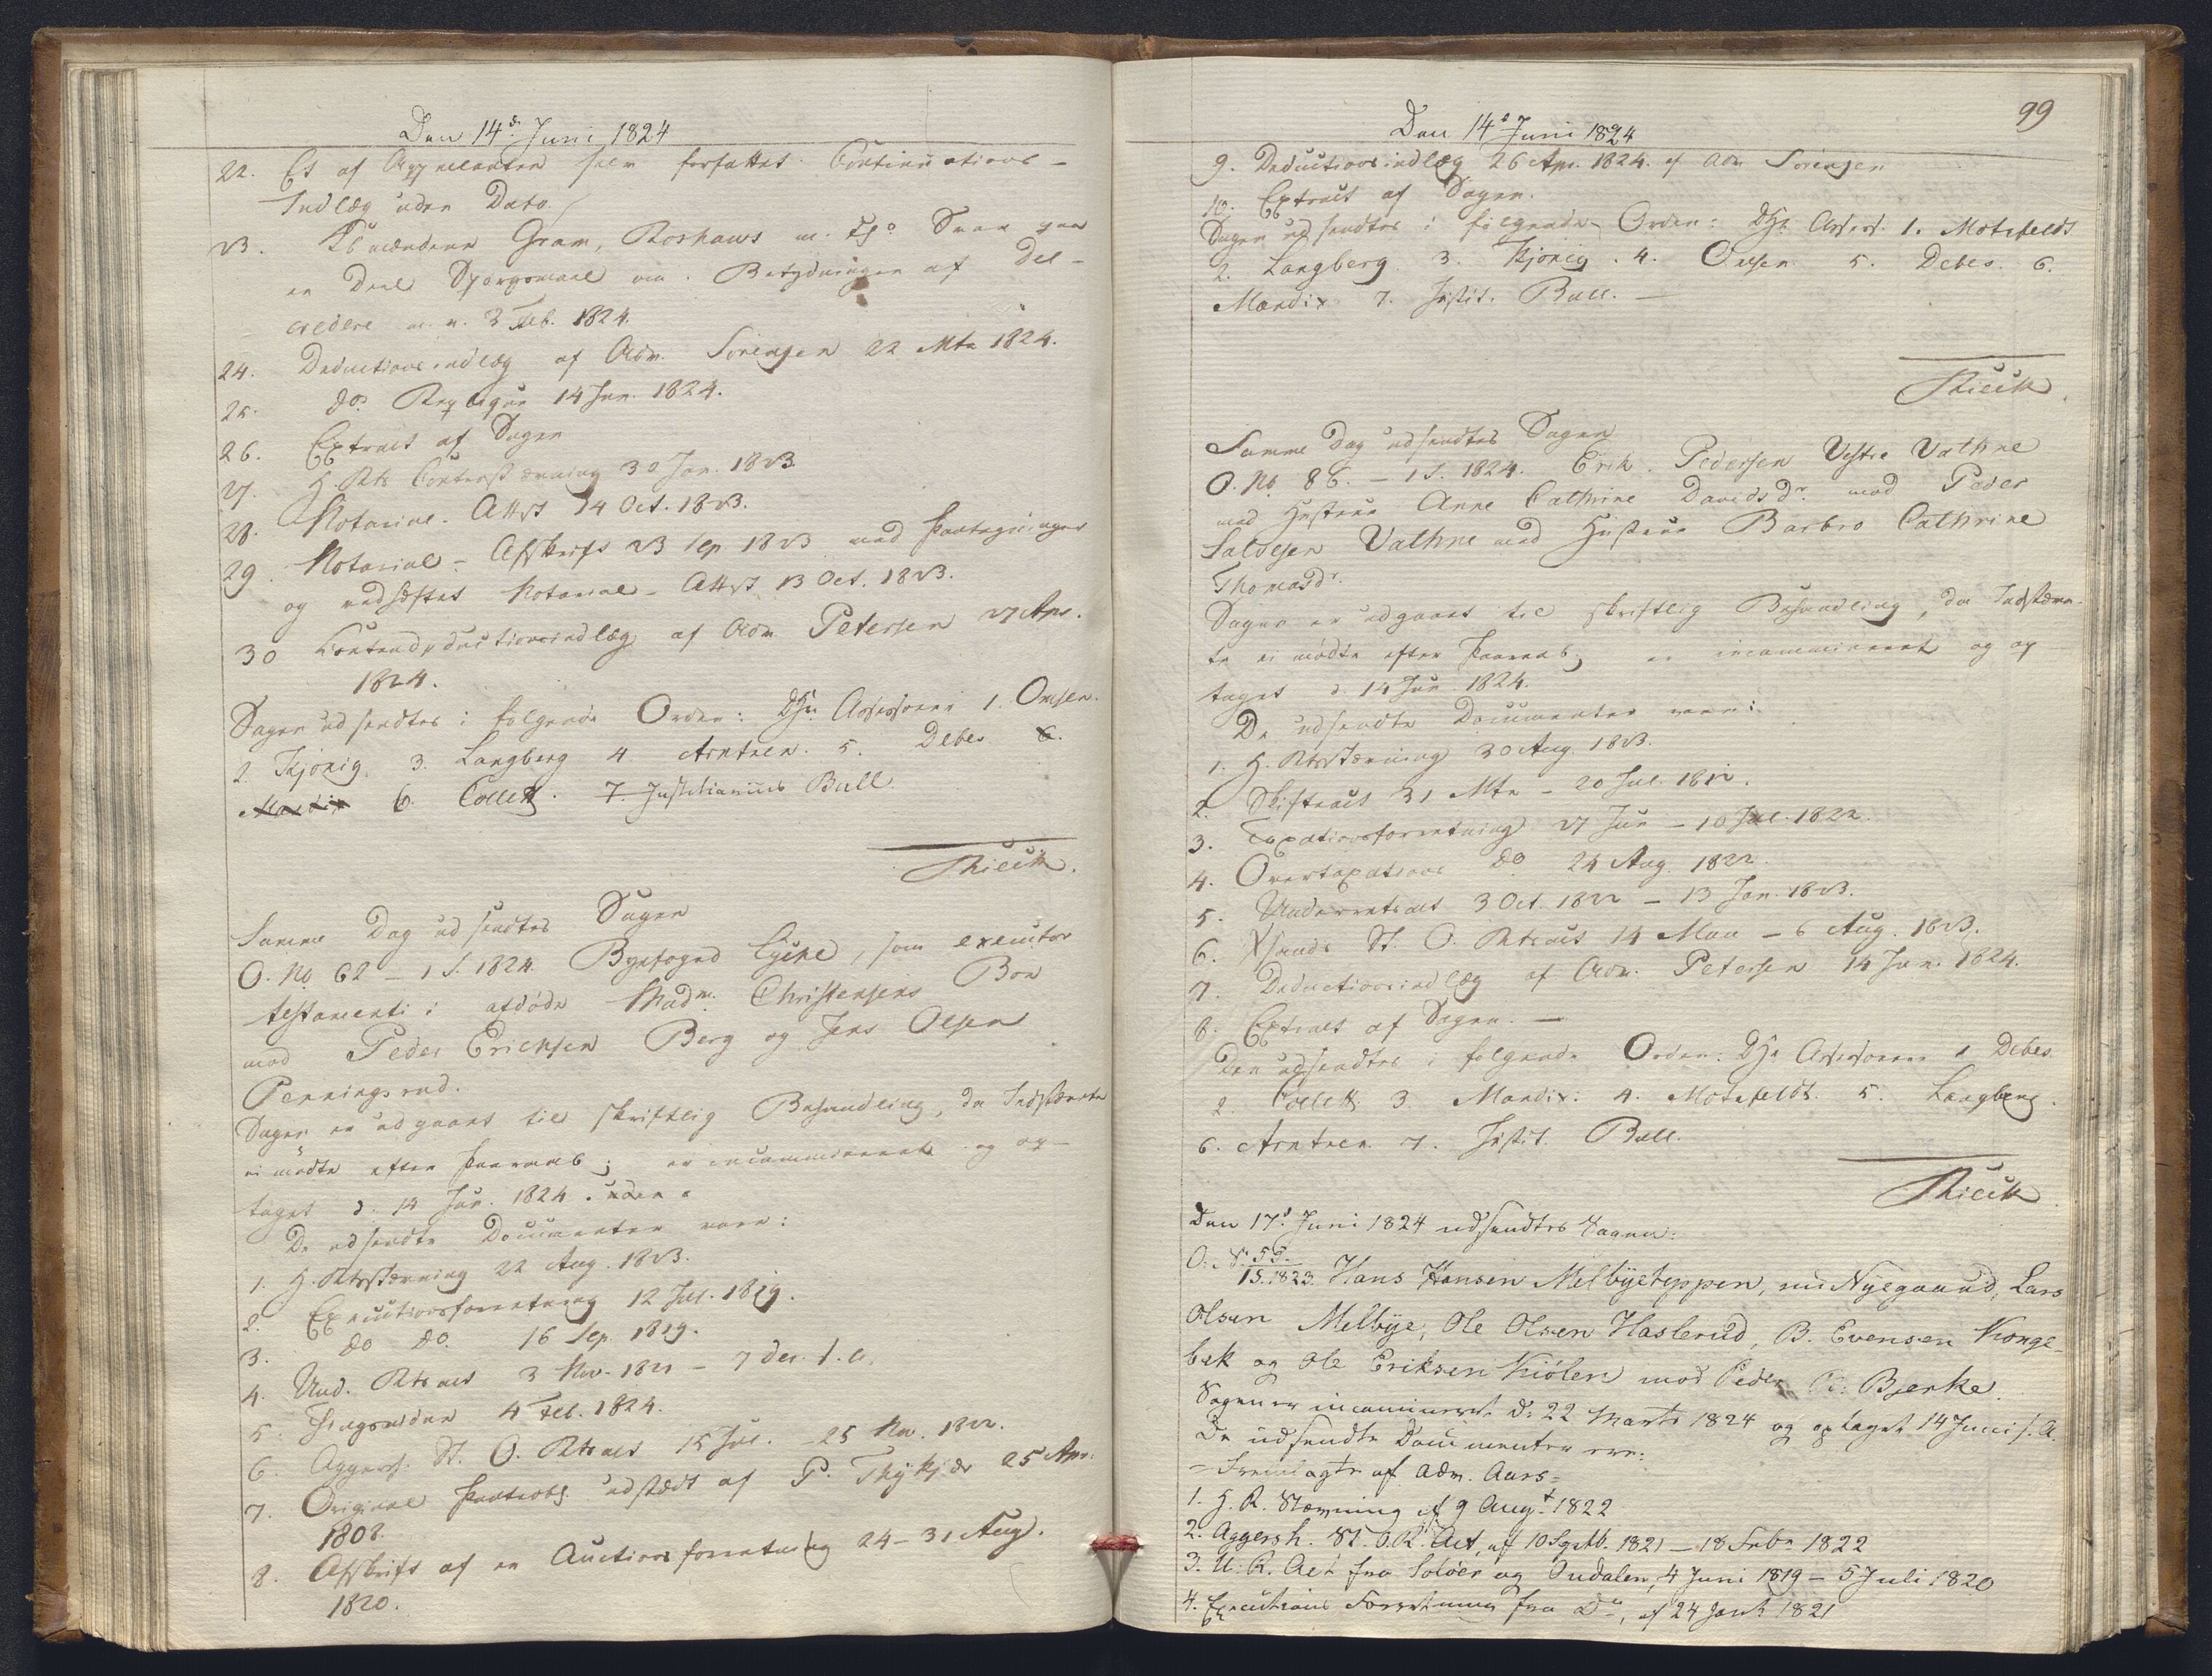 Den 14de Juni 1824
22. Et af Appellanten selv forfattet Continuations-
Indlæg uden Dato.
23. Kbmændene Gram, Roshauw m. fl. Svar paa
en Deel Spørgsmaal om Betydningen af Del-
credere m. v. 3 Feb. 1824.
24. Deductionsindlæg af Adv. Sørensen 22 Mts 1824.
25. do. Replique 14 Jun. 1824.
26. Extract af Sagen
27. H. Rts Contrastævning 30 Jan. 1823.
28. Notarial-Attest 14 Oct. 1823.
29. Notarial-Afskrift 23 Sep 1823 med Paategninger
og vedhæftet Notarial-Attest 13 Oct. 1823.
30 Contradeductionsindlæg af Adv. Petersen 27 Apr.
1824.
Sagen udsendtes i følgende Orden: DHr. Assessorer 1. Omsen.
2. Kjønig 3. Langberg 4 Arntzen. 5. Debes 6.
Mandix 6. Collett. 7. Justitiarius Bull.
Thieck.
Samme Dag udsendtes Sagen
O. No 62 – 1 S. 1824. Byefoged Lycke, som executor
testamenti i afdøde Madm. Christensens Boe
mod Peder Erichsen Berg og Jens Olsen
Penningsrud.
Sagen er udgaaet til skriftlig Behandling, da Indstævnte
ei mødte efter Paaraab; er incammineret og op-
taget d. 14 Jun. 1824.
De udsendte Documenter vare:
1. H. Rtsstævning 22 Aug. 1823.
2. Executionsforretning 12 Jul. 1819.
3. do do. 16 Sep. 1819.
4. Und. Rtsact 3 Nov. 1821 – 7 Dec. s. a.
5. Thingsvidne 4 Feb. 1824.
6. Aggersh. St. O. Rtsact 15 Jul. – 25 Nov. 1822.
7. Original Pantoblg. udstædt af P. 25 Apr.
1808.
8. Afskrift af en Auctionsforretning 24–31 Aug.
1820.
99
Den 14de Juni 1824
9. Deductionsindlæg 26 Apr. 1824. af Adv. Sørensen
10. Extract af Sagen.
Sagen udsendtes i følgende Orden: DHr. Assess. 1. Motzfeldt
2. Langberg 3. Kjønig. 4. Omsen 5. Debes. 6.
Mandix 7. Justit. Bull. —
Thieck.
Samme Dag udsendtes Sagen
O. No 86. – 1 S. 1824. Erik Pedersen Vestre Vathne
med Hustrue Anne Cathrine Davidsdr. mod Peder
Salvesen Vathne med Hustrue Barbro Cathrine
Thomasdr.
Sagen er udgaaet til skriftlig Behandling, da Indstævn-
te ei mødte efter Paaraab; er incammineret og op
taget d. 14 Jun. 1824.
De udsendte Documenter vare:
1. H. Rtsstævning 30 Aug. 1823.
2. Skifteact 31 Mts – 20 Jul. 1812.
3. Taxationsforretning 27 Jun – 10 Jul. 1822.
4. Overtaxations do 24 Aug. 1822.
5. Underretsact 3 Oct. 1822 – 13 Jan. 1823.
6. Xsands St. O. Rtsact 14 Mai – 6 Aug. 1823.
7. Deductionsindlæg af Adv. Petersen 14 Jun. 1824.
8. Extract af Sagen. —
Den udsendtes i følgende Orden: DHr Assessorer 1 Debes
2 Collett. 3. Mandix. 4. Motzfeldt. 5. Langberg.
6. Arntzen 7. Justit. Bull.
Thieck
Den 17de Juni 1824 udsendtes Sagen:
O. No 55. 1 S. 1823. Hans Hansen Melbyeteppen, nu Nyegaard, Lars
Olsen Melbye, Ole Olsen Haslerud, B. Evensen Konge-
bek og Ole Eriksen Kiølen mod Peder Bjerke.
Sagen er incammineret d. 22 Marts 1824 og optaget 14 Juni s. A.
De udsendte Documenter ere:
= Fremlagte af Adv. Aars =
1. H. R. Stævning af 9 Augt 1822
2. Aggersh. St. O. R. Act, af 10 Septb. 1821 – 18 Febr 1822
3. U. R. Act fra Soløer og Oudalen, 4 Juni 1819 – 5 Juli 1820
4. Executions Forretning fra Do, af 24 Jan. 1821